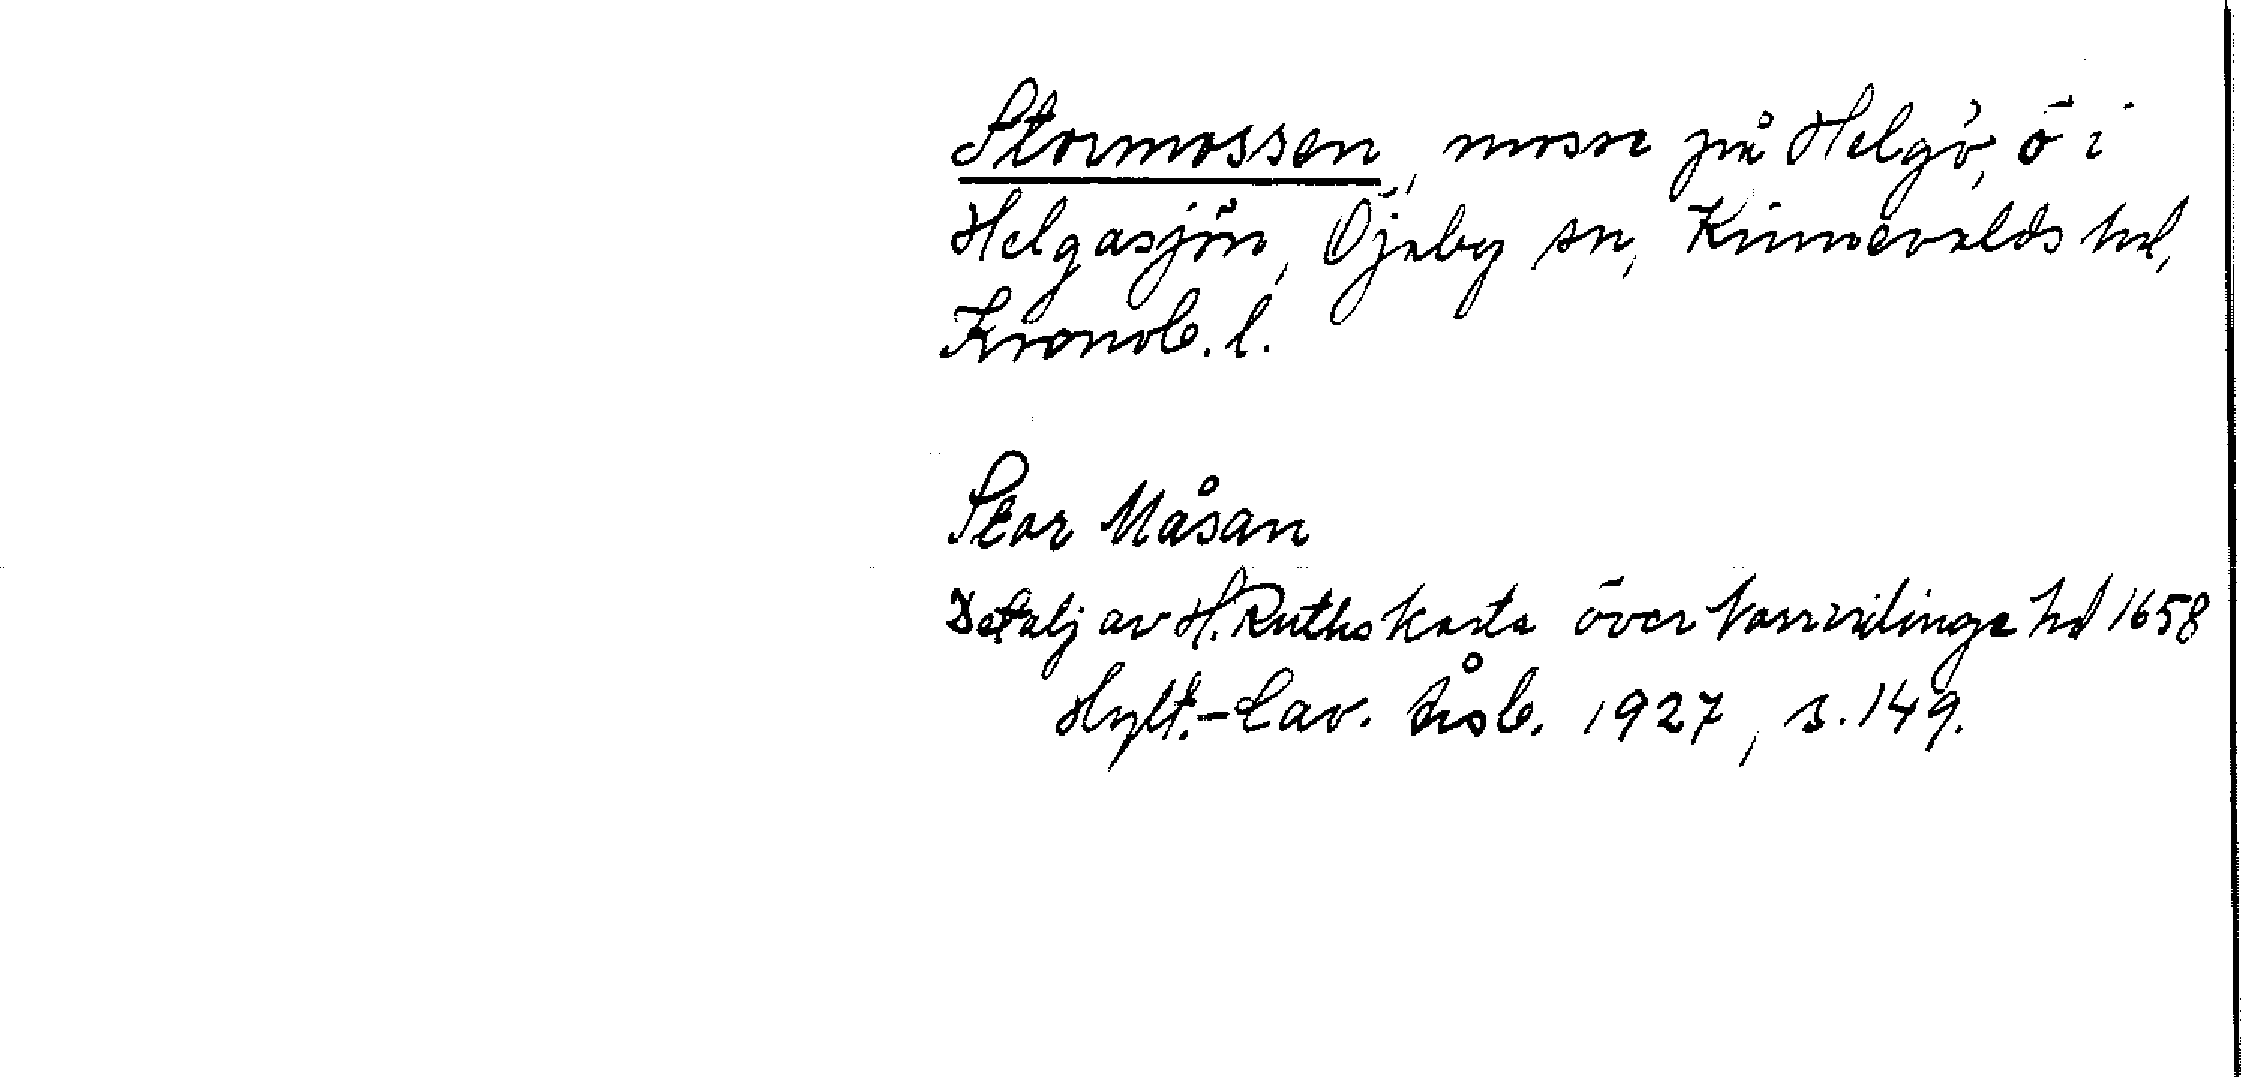 Stormossen, mosse på Helgö, ö i
Helgasjön, Öjaby sn, Kinnevalds hd,
Kronob. l.
Stor Måsan
Detalj av H. Ruths karta över Norrvidinge hd 1658
Hylt.-Cav. årsb. 1927, s. 149.